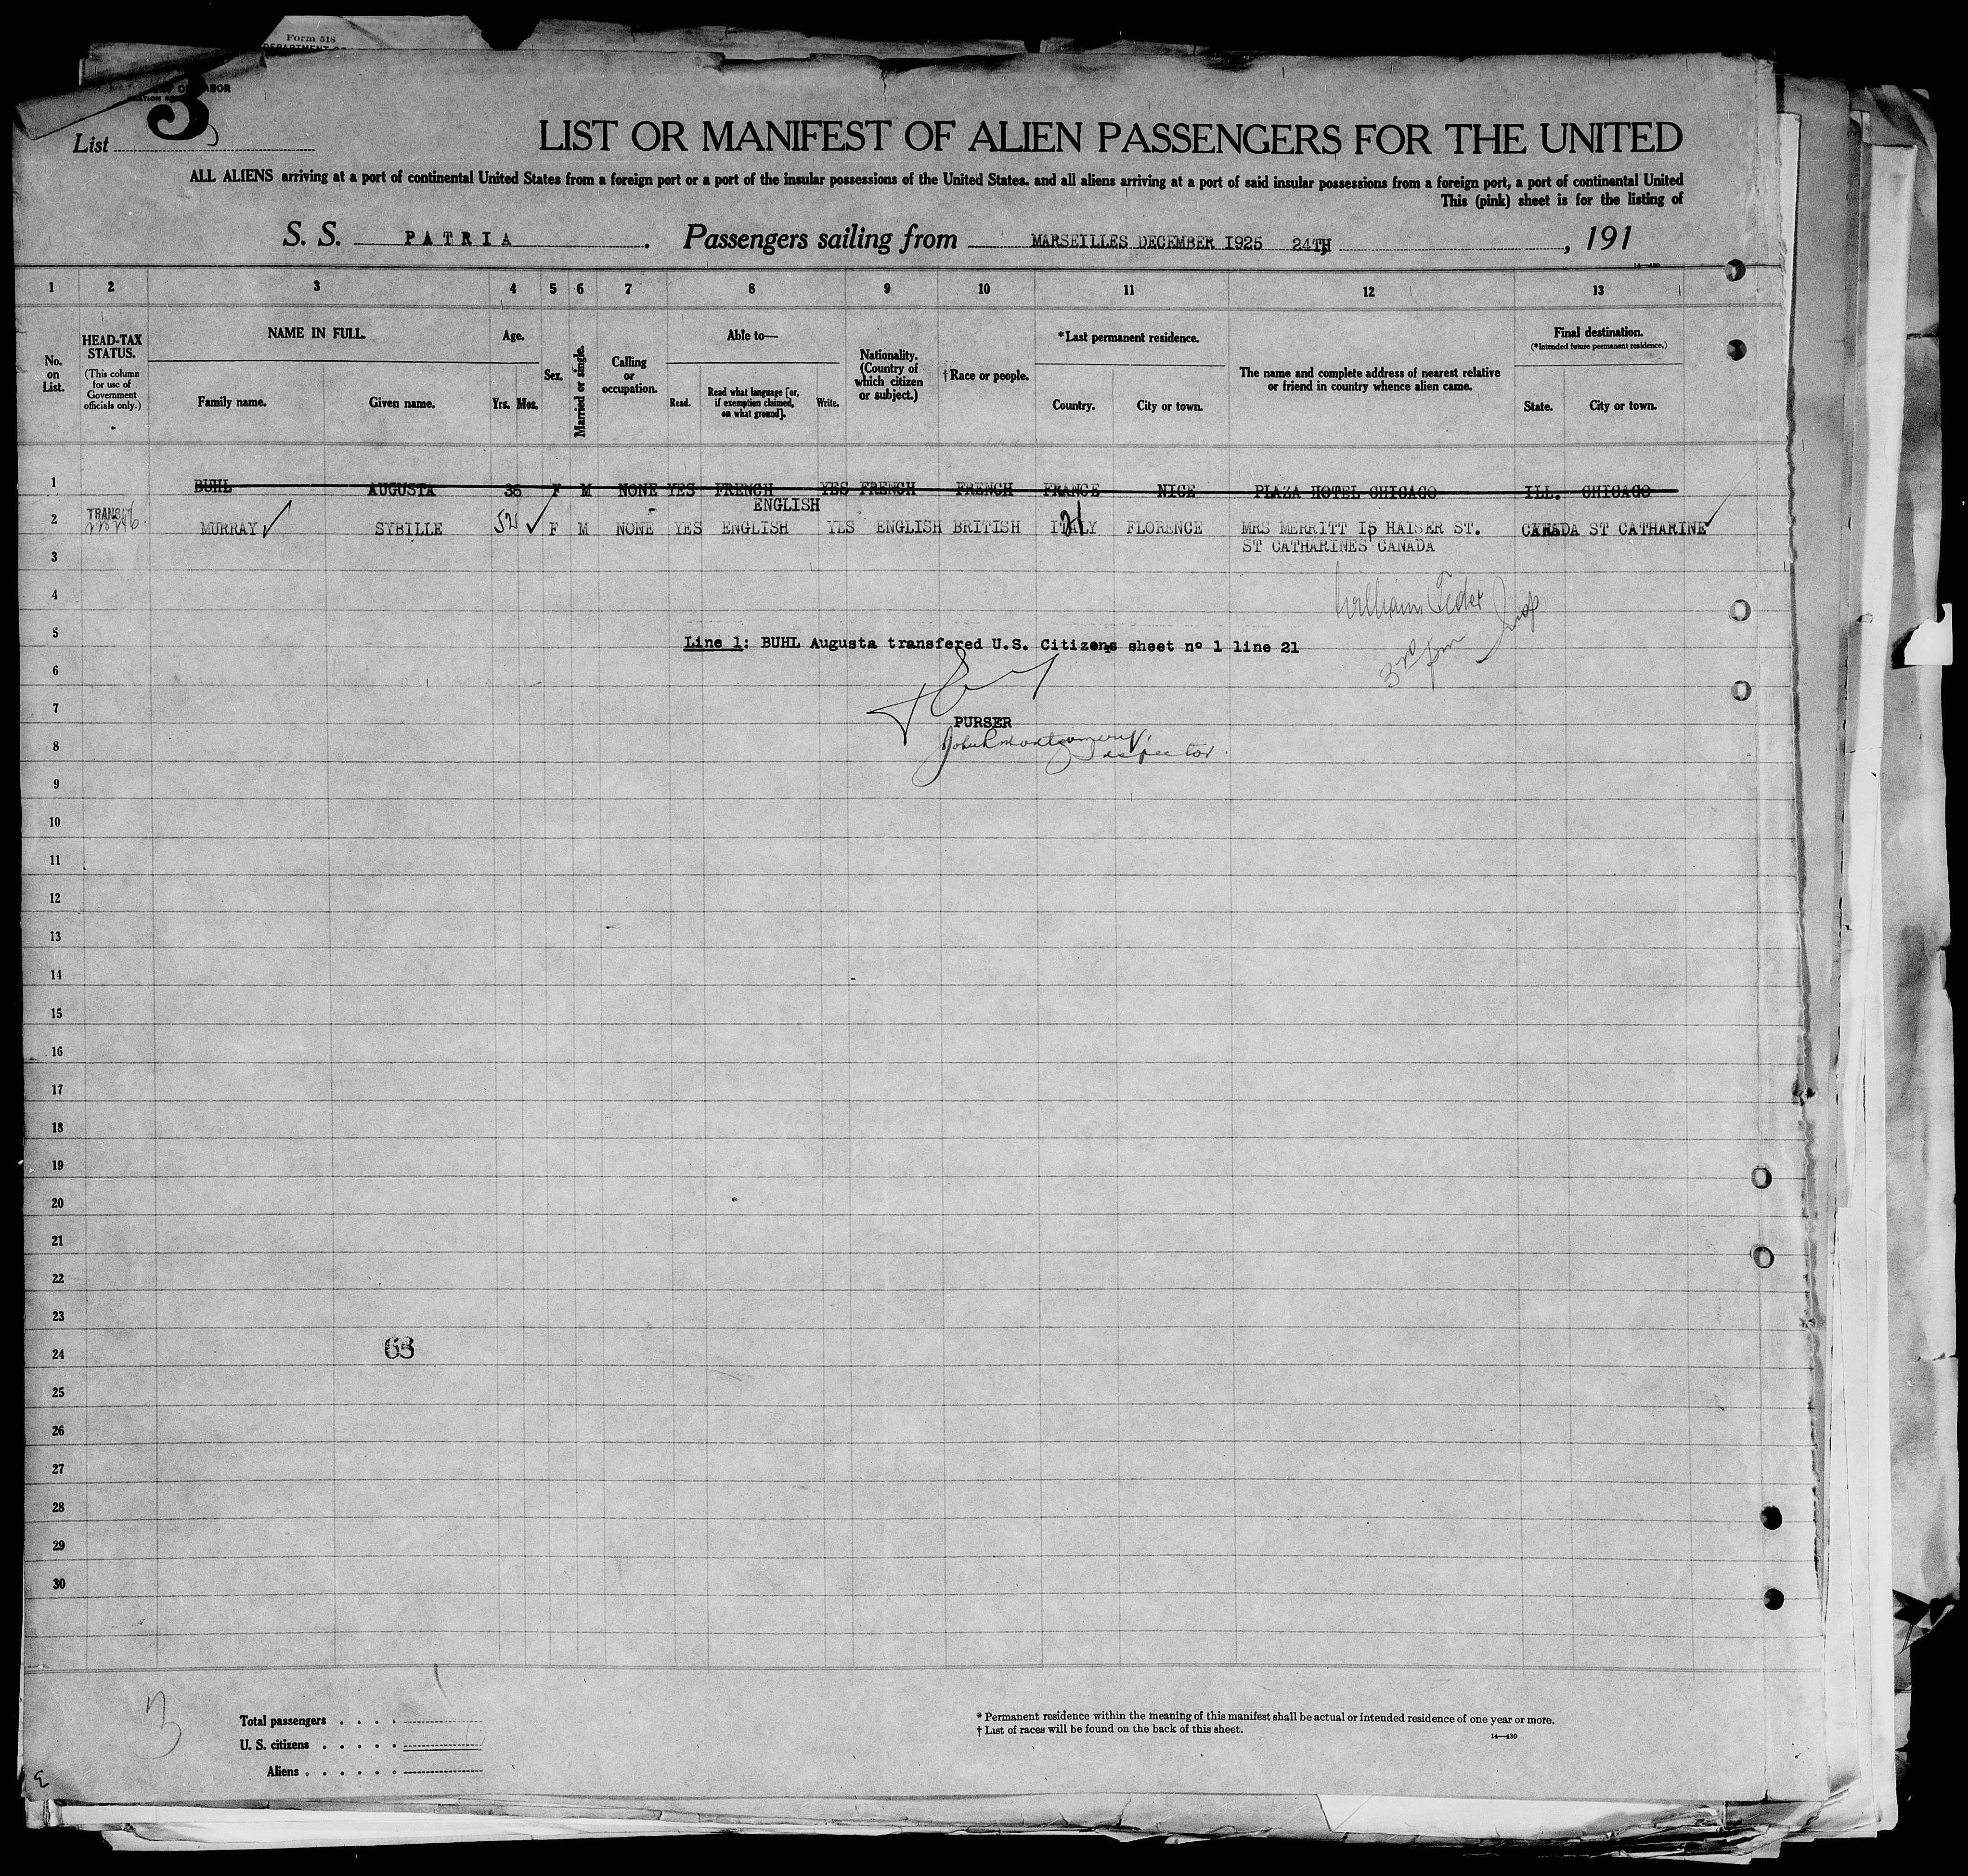 Form 518
3
List
LIST OR MANIFEST OF ALIEN PASSENGERS FOR THE UNITED
ALL ALIENS arriving at a port of continental United States from a foreign port or a port of the insular possessions of the United States, and all aliens arriving at a port of said insular possessions from a foreign port, a port of continental United
This (pink) sheet is for the listing of
S. S. PATRIA. Passengers sailing from MARSEILLES DECEMBER 1925 24TH, 191
14—430
1 2 3 4 5 6 7 8 9 10 11 12 13
No. on List.
HEAD-TAX STATUS.
(This column for use of Government officials only.)
NAME IN FULL.
Family name. Given name.
Age.
Yrs. Mos.
Sex.
Married or single.
Calling or occupation.
Able to—
Read. Read what language [or, if exemption claimed, on what ground]. Write.
Nationality. (Country of which citizen or subject.)
†Race or people.
*Last permanent residence.
Country. City or town.
The name and complete address of nearest relative or friend in country whence alien came.
Final destination.
(*Intended future permanent residence.)
State. City or town.
1 BUHL AUGUSTA 38 F M NONE YES FRENCH YES FRENCH FRENCH FRANCE NICE PLAZA HOTEL CHICAGO ILL. CHICAGO
ENGLISH
2 TRANSIT MURRAY SYBILLE 52 F M NONE YES ENGLISH YES ENGLISH BRITISH ITALY FLORENCE MRS MERRITT 15 HAISER ST. CANADA ST CATHARINE
3 ST CATHARINES CANADA
4 William
5 Line 1: BUHL Augusta transfered U.S. Citizens sheet no 1 line 21
6 3rd
7 PURSER
8 John R Montgomery, Inspector
9
10
11
12
13
14
15
16
17
18
19
20
21
22
23
24 63
25
26
27
28
29
30
3
Total passengers
U. S. citizens
Aliens
* Permanent residence within the meaning of this manifest shall be actual or intended residence of one year or more.
† List of races will be found on the back of this sheet.
14—430